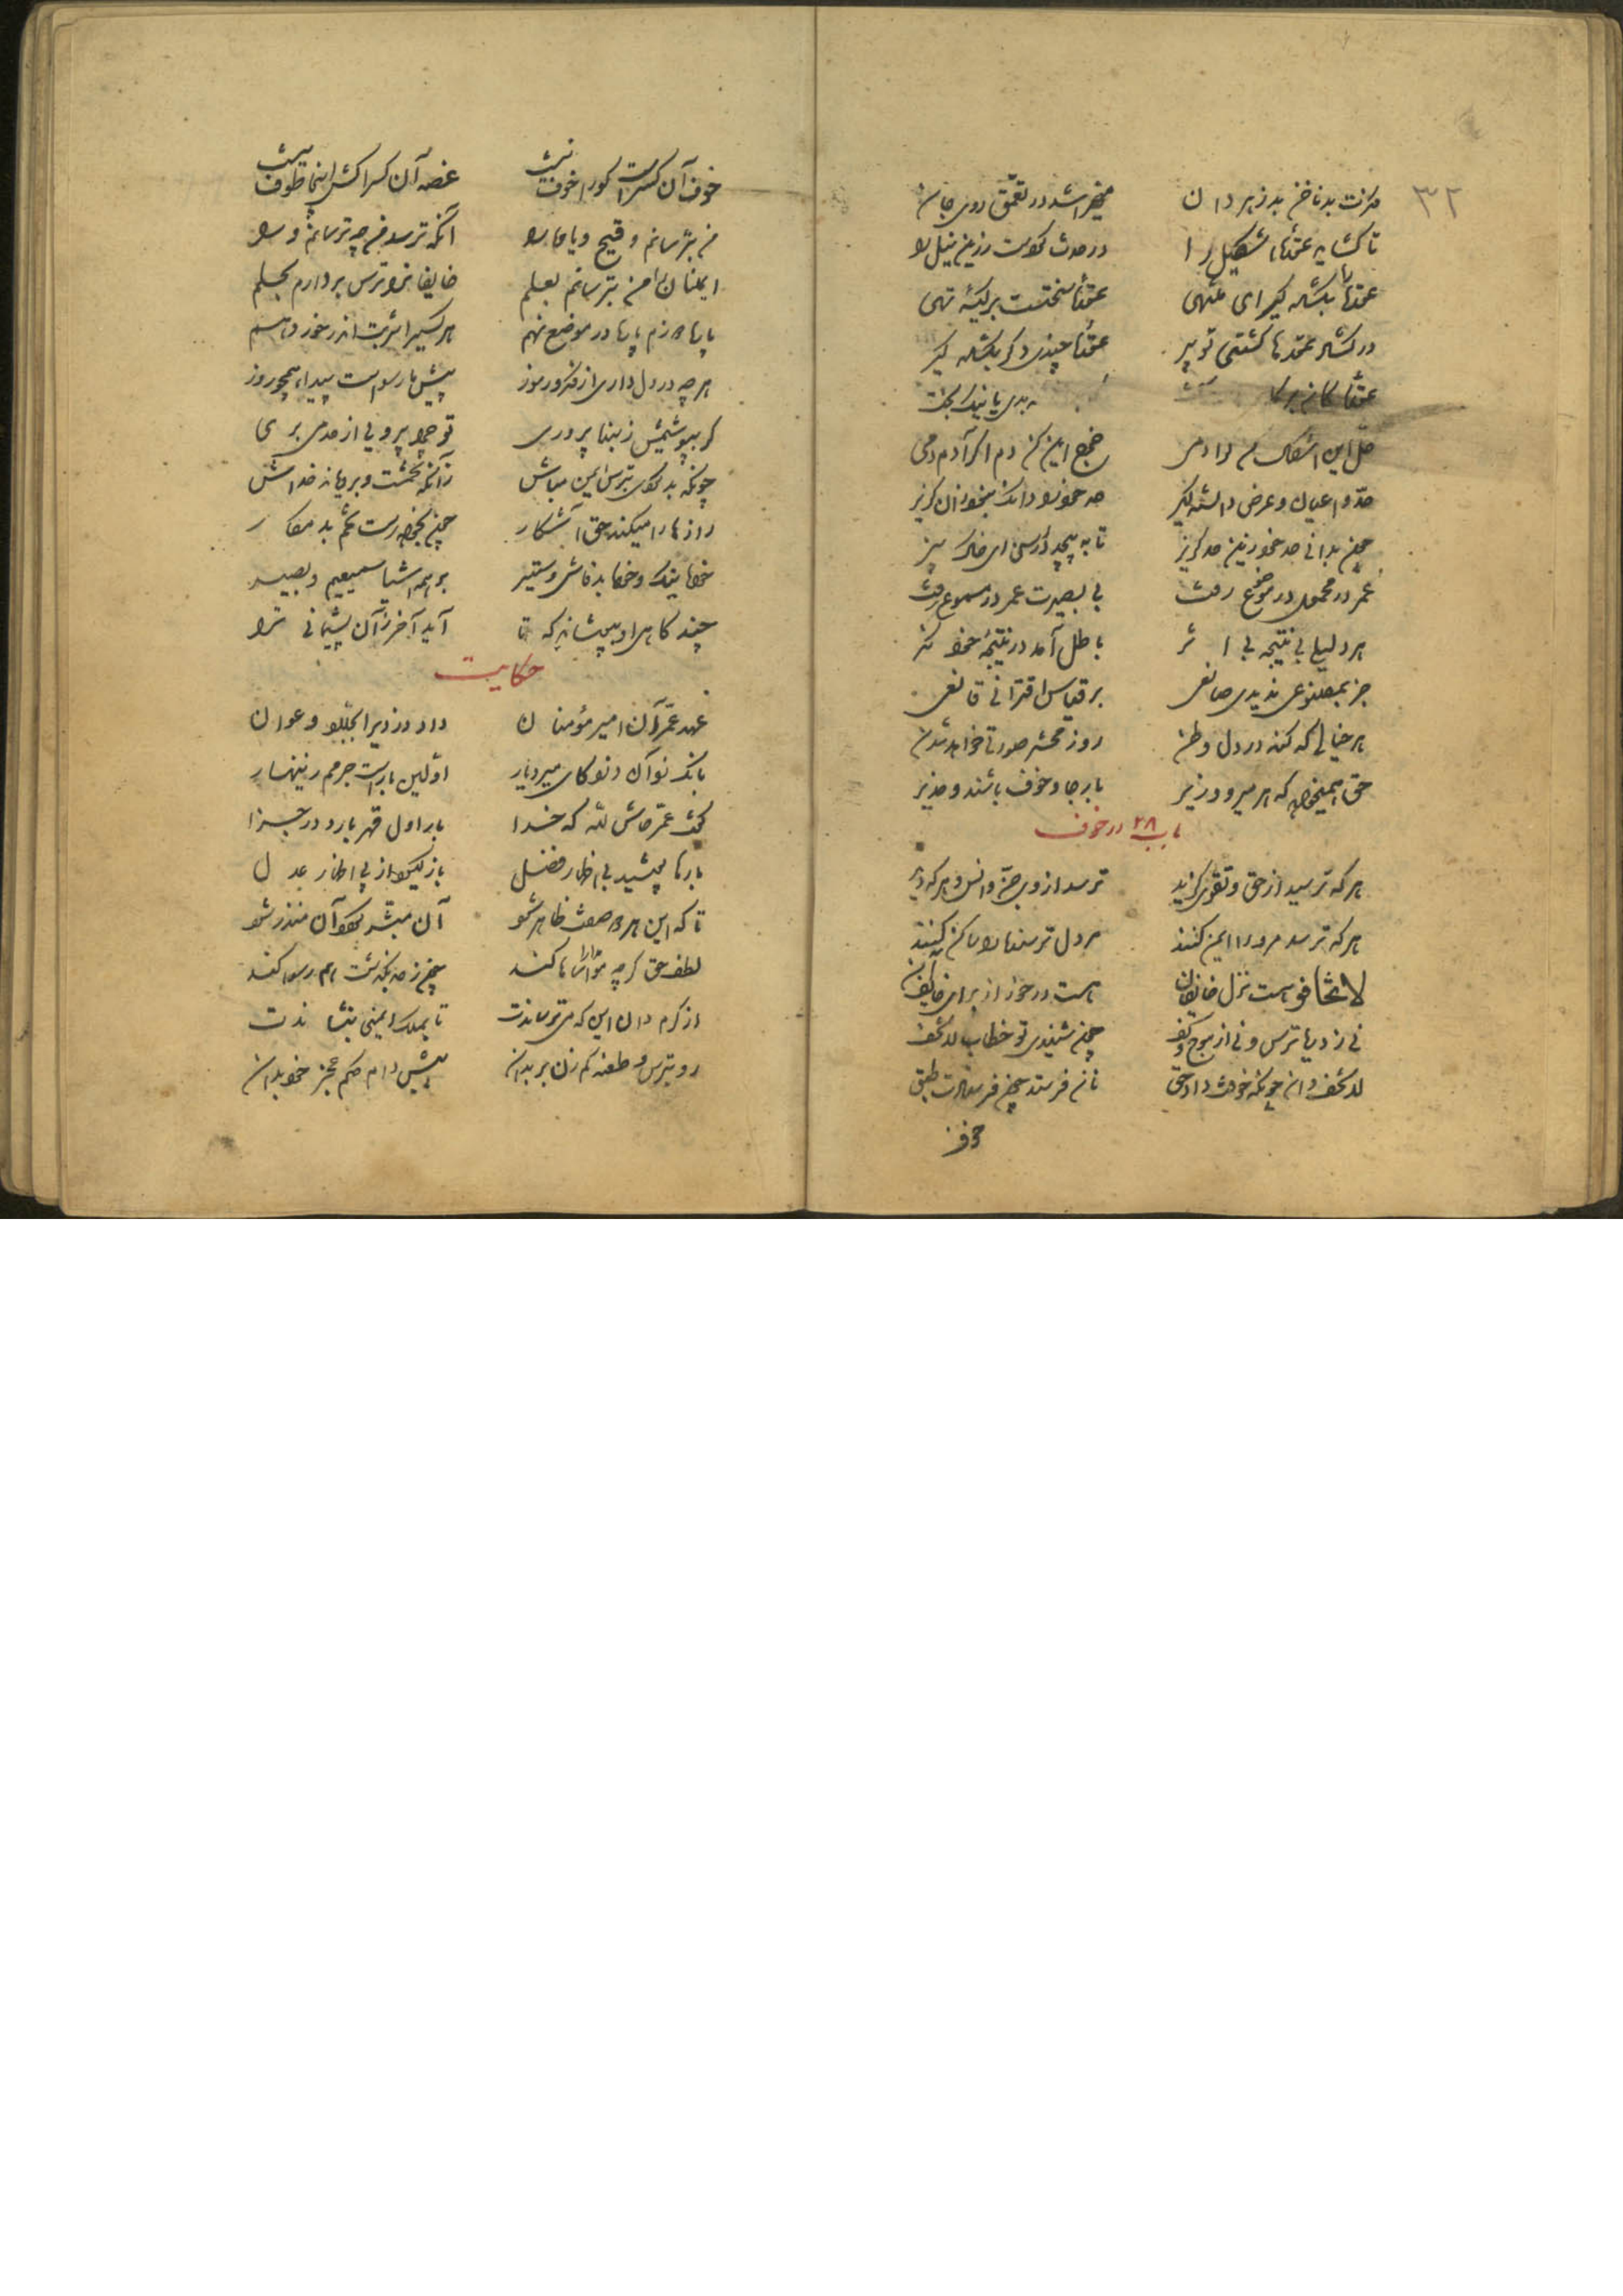 ٣٢
فکرت بد ناخن پر زهر دان    میخراشد در تعمق روی جان
تا گشاید عقدهٔ اشکیل را    در حدث کردست زرین بیل را
عقده را بگشاده گیر ای منتهی    عقدهٔ سختست بر کیسهٔ تهی
در گشاد عقدها گشتی تو پیر    عقدهٔ چندی دگر بگشاده گیر
عقدهٔ کان بر    بدی یا نیکبخت
حل این اشکال کن گر آدمی    خرج این کن دم اگر آدم دمی
حد اعیان و عرض دانسته گیر    حد خود را دان کزان نبود گزیر
چون بدانی حد خود زین حد گریز    تا به بیحد در رسی ای خاک بیز
عمر در محمول و در موضوع رفت    بی بصیرت عمر در مسموع رفت
هر دلیلی بی نتیجه بی اثر    باطل آمد در نتیجهٔ خود نگر
جز بمصنوعی ندیدی صانعی    بر قیاس اقترانی قانعی
هر خیالی که کند در دل وطن    روز محشر صورتی خواهد شدن
حق همیخواهد که هر میر و وزیر    با رجا و خوف باشند و حذیر
باب ٢٨ در خوف
هر که ترسید از حق و تقوی گزید    ترسد از وی جن و انس و هر که دید
هر که ترسد مرورا ایمن کنند    مر دل ترسنده را ساکن کنند
لا تخافوا هست نزل خائفان    هست درخور از برای خایف آن
نی ز دریا ترس و نی از موج و کف    چون شنیدی تو خطاب لاتخف
لاتخف دان چونکه خوفت داد حق    نان فرستد چون فرستادت طبق
خوف
خوف آن کس راست کو را خوف نیست    غصه آن کس را کش اینجا طوف نیست
من بترسانم وقیح یاوه را    آنکه ترسد من چه ترسانم ورا
ایمنان را من بترسانم بعلم    خایفان را ترس بردارم بحلم
پاره دوزم پاره در موضع نهم    هر کسی را شربت اندر خور دهم
هر چه در دل داری از مکر و رموز    پیش ما رسواست و پیدا همچو روز
گر بپوشیمش ز بنده پروری    تو چرا بیرویی از حد می بری
چونکه بد کردی بترس ایمن مباش    زانکه تخمست و برویاند خداش
رازها را میکند حق آشکار    چون بخواهد رست تخم بد مکار
خواه نیک و خواه بد فاش و ستیر    بر همه اشیا سمیعیم و بصیر
چند گاهی او بپوشاند که تا    آید آخر زان پشیمانی ترا
حکایت
عهد عمر آن امیر مؤمنان    داد دزدی را بجلاد و عوان
بانگ زد آن دزد کای میر دیار    اولین بارست جرمم زینهار
گفت عمر حاش لله که خدا    بار اول قهر بارد در جزا
بارها پوشید پی اظهار فضل    باز گیرد از پی اظهار عدل
تا که این هر دو صفت ظاهر شود    آن مبشر گردد آن منذر شود
لطف حق گرچه مواساها کند    چون ز حد بگذشت هم رسوا کند
از کرم دان این که میترساندت    تا بملک ایمنی بنشاندت
رو بترس و طعنه کم زن بر بدان    پیش دام حکم عجز خود بدان